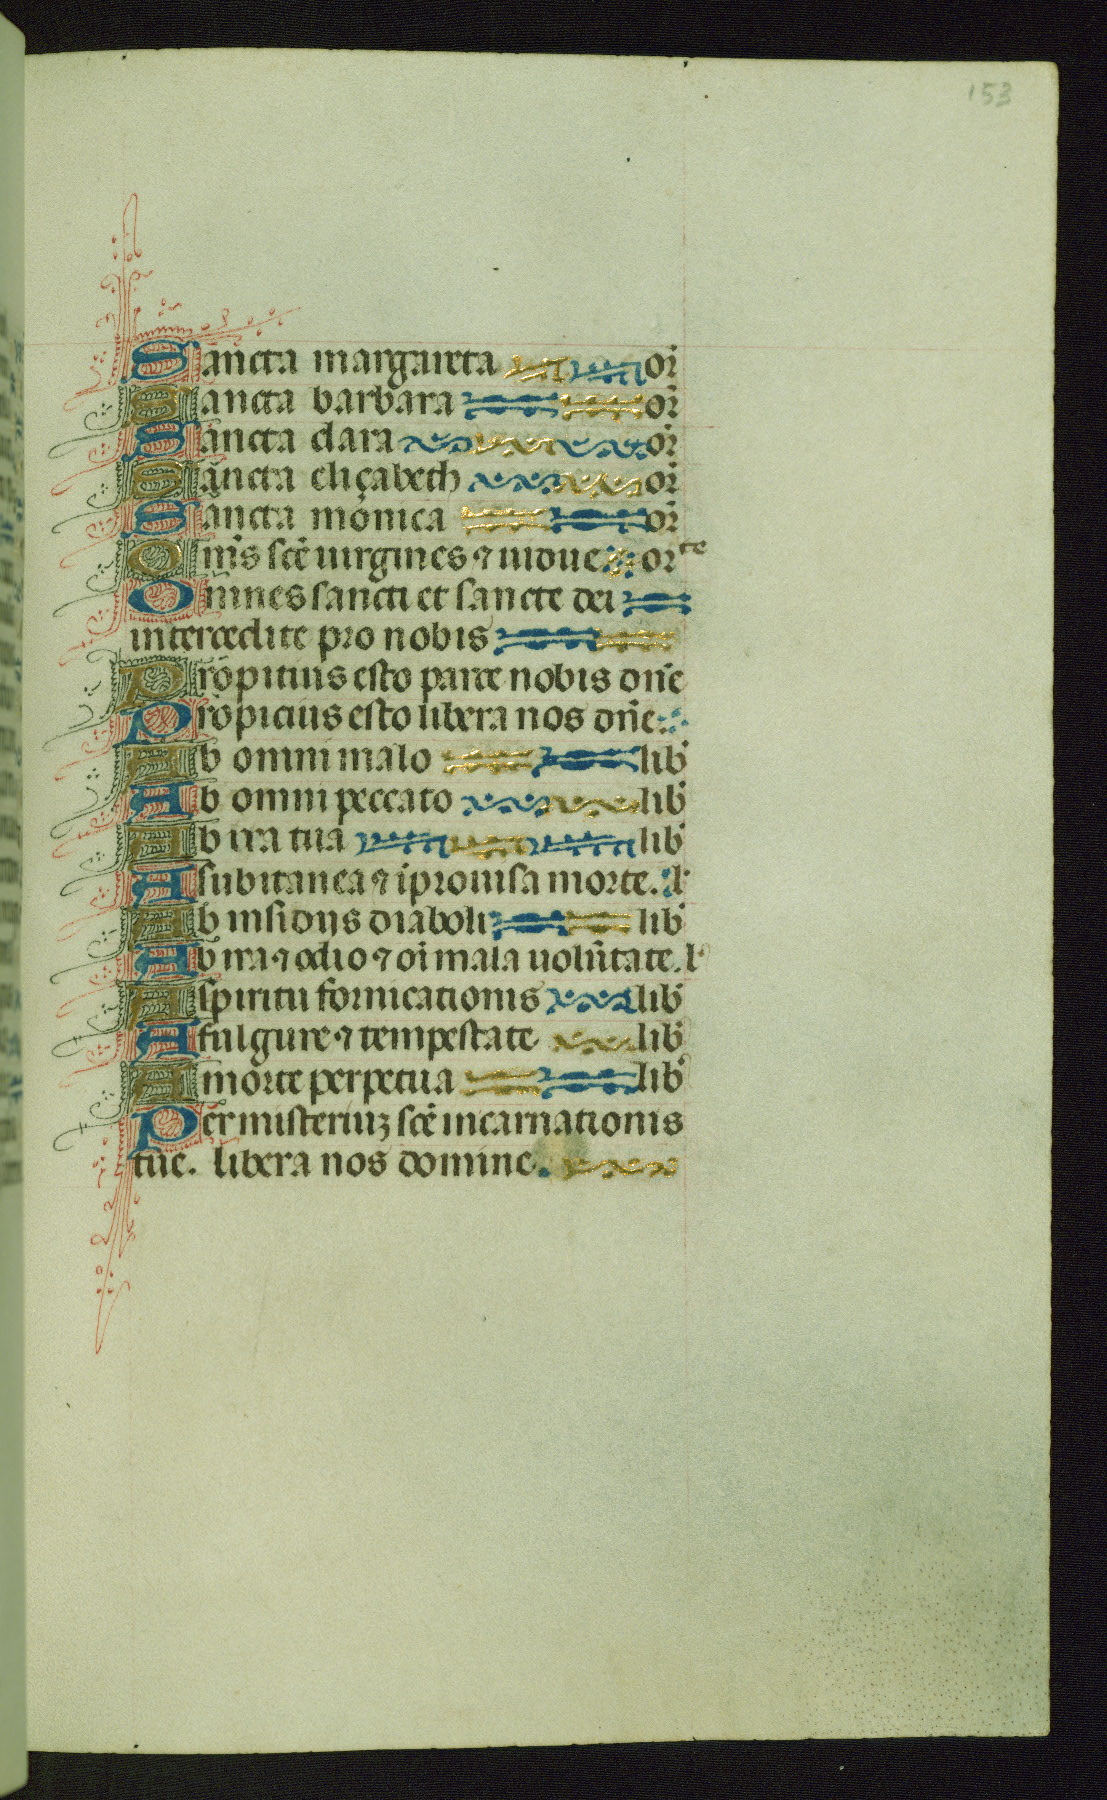 153
Sancta margareta or̄
Sancta barbara or̄
Sancta clara or̄
Sancta eliçabeth or̄
Sancta monica or̄
Oms̄ scē uirgines ⁊ uidue orte
Omnes sancti et sancte dei
intercedite pro nobis
Propitius esto parce nobis dn̄e
Propicius esto libera nos dn̄e
Ab omni malo lib̄
Ab omni peccato lib̄
Ab ira tua lib̄
A subitanea ⁊ īprouisa morte. l
Ab insidijs diaboli lib̄
Ab ira ⁊ odio ⁊ oī mala uolūtate. l
A spiritu fornicationis lib̄
A fulgure ⁊ tempestate lib̄
A morte perpetua lib̄
Per misteriuʒ scē incarnationis
tue. libera nos domine.